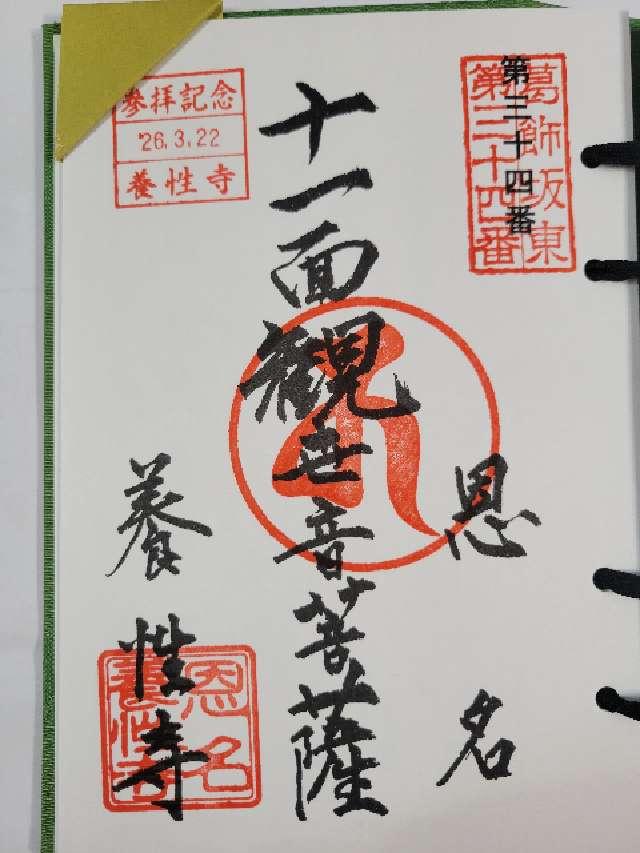 葛飾坂東
第三十四番
第三十四番
恩名
十一面観世音菩薩
參拝記念
'26.3.22
養性寺
養性寺
恩名
養性寺